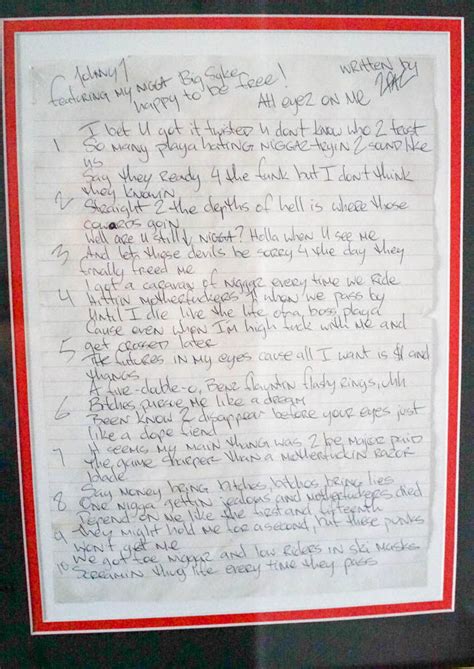 Johnny J
featuring my nigga Big Syke
happy to be free!
written by
2PAC
All eyez on me
1 I bet U got it twisted U don't know who 2 trust
So many playa hating niggaz tryin 2 sound like
us
Say they Ready 4 the funk but I don't think
they knowin
2 Straight 2 the depths of hell is where those
cowards goin
Well are u still, nigga? Holla when U see me
3 And let these devils be sorry 4 the day they
finally freed me
I got a caravan of niggaz every time we Ride
4 Hittin Motherfuckers when we pass by
Until I die like the life of a boss playa
Cause even when I'm high fuck with me and
5 get crossed later
The futures in my eyes cause all I want is $ and
thangs
A five-double-o, Benz flauntin flashy rings, uhh
6 Bitches pursue me like a dream
Been know 2 disappear before your eyes just
like a dope fiend
It seems my main thang was 2 be major paid
7 The game sharper than a motherfuckin razor
blade
Say money bring bitches, bitches bring lies
8 One nigga gettin jealous and motherfuckers died
Depend on me like the first and fifteenth
9 they might hold me for a second, but these punks
won't get me
We got foe niggaz and low riders in ski masks
10 Screamin thug life every time they pass